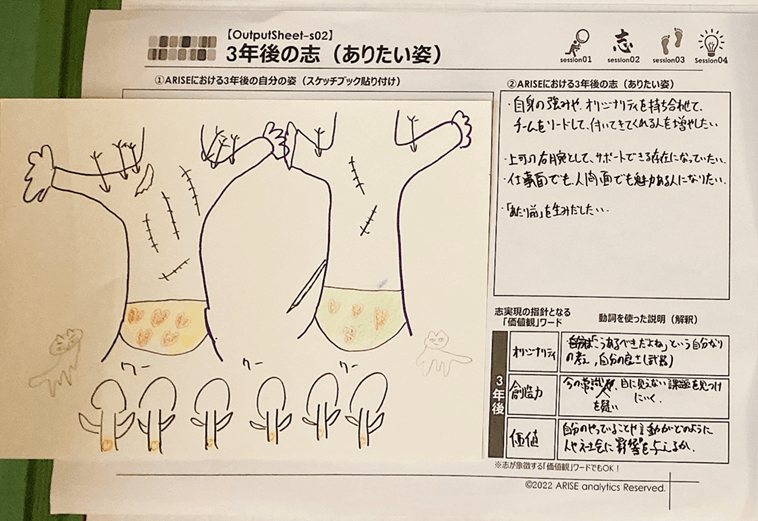 【OutputSheet-s02】
3年後の志（ありたい姿）
session01
志
session02
session03
Session04
①ARISEにおける3年後の自分の姿（スケッチブック貼り付け）
②ARISEにおける3年後の志（ありたい姿）
・自身の強みや、オリジナリティを持ち合わせて、
チームをリードして、付いてきてくれる人を増やしたい
・上司の右腕として、サポートできる存在になっていたい。
・仕事面でも、人間面でも魅力ある人になりたい。
・「あたり前」を生みだしたい。
クー
クー
クー
志実現の指針となる
「価値観」ワード
動詞を使った説明（解釈）
3年後
オリジナリティ
「こうあるべきだよね」という自分なり
の考え、自分の良さ(武器)
創造力
今の常識や、目に見えない課題を見つけ
を疑い
にいく。
価値
自分のやっていることや言動がどのように
人や社会に影響を与えるか。
※志が象徴する「価値観」ワードでもOK！
©2022 ARISE analytics Reserved.